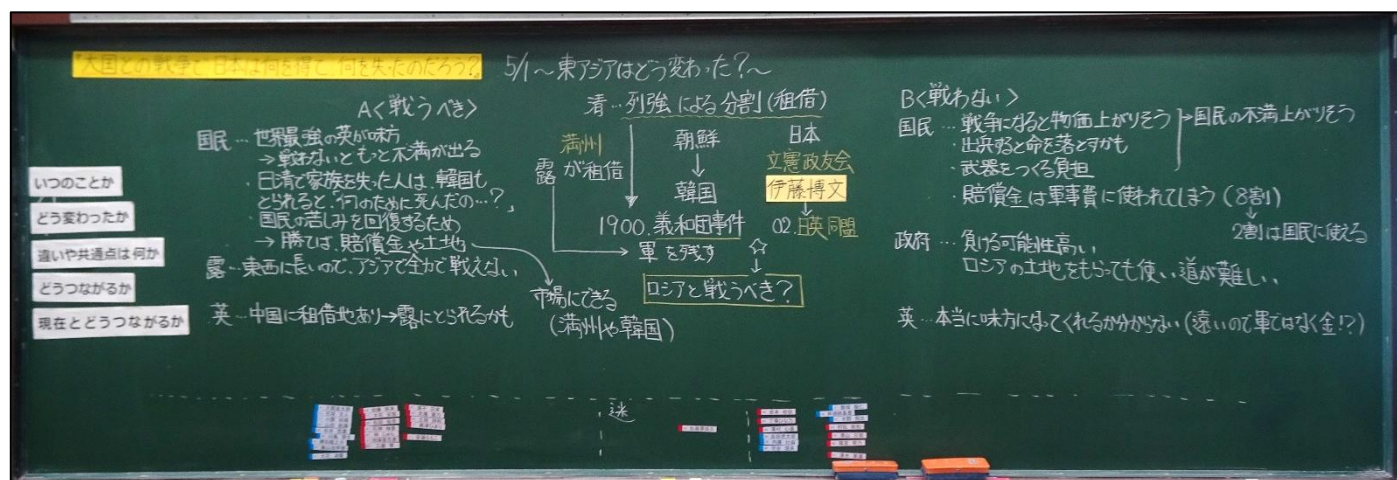 "大国との戦争で日本は何を得て何を失ったのだろう?"
5/1～東アジアはどう変わった?～
いつのことか
どう変わったか
違いや共通点は何か
どうつながるか
現在とどうつながるか
A<戦うべき>
国民…世界最強の英が味方
→戦わないともっと不満が出る
・日清で家族を失った人は、韓国も
とられると、何のために死んだの…?」
・国民の苦しみを回復するため
→勝てば、賠償金や土地
市場にできる
(満州や韓国)
露…東西に長いので、アジアで全力で戦えない
英…中国に租借地あり→露にとられるかも
清…列強による分割(租借)
満州
露が租借
朝鮮
↓
韓国
日本
立憲政友会
伊藤博文
1900.義和団事件
02.日英同盟
→軍を残す
☆
ロシアと戦うべき?
B<戦わない>
国民…戦争になると物価上がりそう
・出兵すると命を落とすかも
・武器をつくる負担
→国民の不満上がりそう
・賠償金は軍事費に使われてしまう(8割)
2割は国民に使える
政府…負ける可能性高い
ロシアの土地をもらっても使い道が難しい、
英…本当に味方になってくれるか分からない(遠いので軍ではなく金!?)
迷